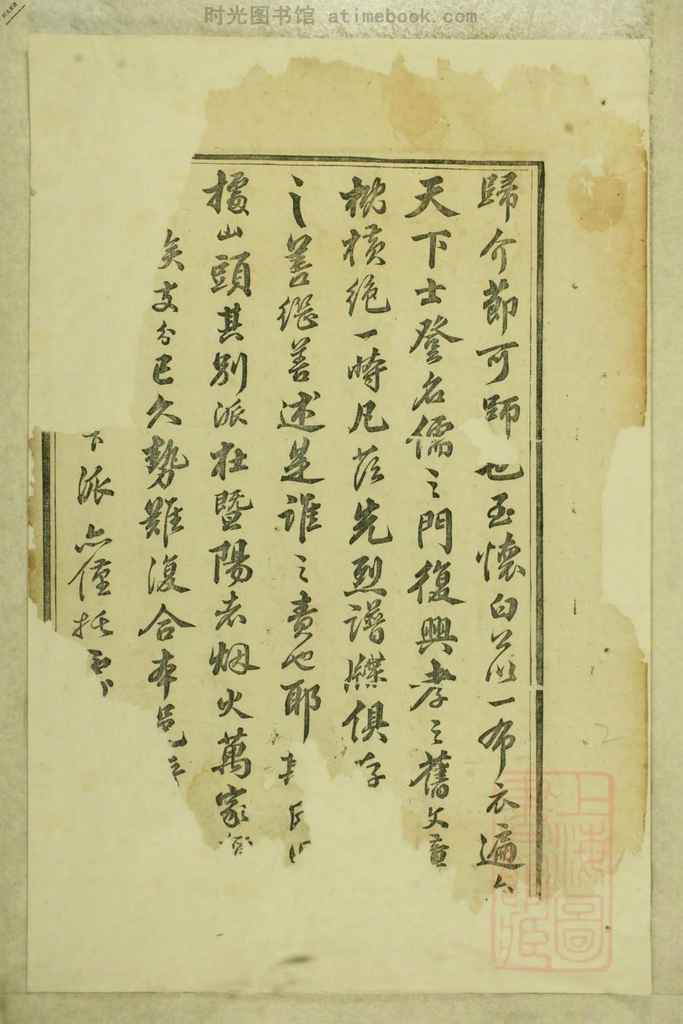 时光图书馆 atimebook.com
歸介節可師也至懷白公以一布衣遍
天下士登名儒之門復興孝之舊文
橫絕一時凡茲先烈譜牒俱存
之善繼善述是誰之責也耶
據山頭其別派在暨陽者烟火萬家
矣支分已久勢難復合本邑
下派亦僅
上海圖